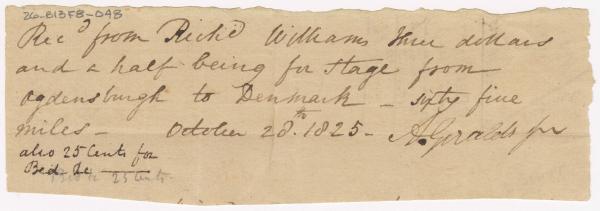 26-B13F8-DAB
Rec'd from Rich'd Williams three dollars
and a half being for stage from
Ogdensburgh to Denmark - sixty five
miles - October 28th. 1825 -
also 25 Cents for
Bed &c
25 Cents